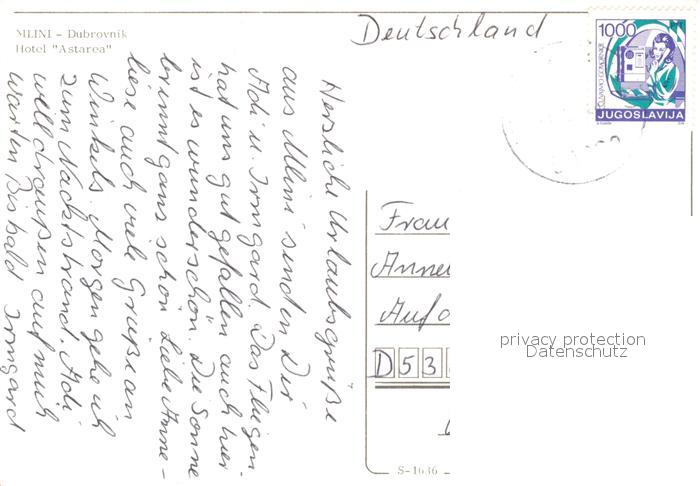 MLINI - Dubrovnik
Hotel "Astarea"
Deutschland
1000
JUGOSLAVIJA
Herzliche Urlaubsgrüße
aus Mlini senden Dir
Adi u. Irmgard. Das Fliegen
hat uns gut gefallen auch hier
ist es wunderschön. Die Sonne
brennt ganz schön. Liebe Anne-
liese auch viele Grüße an
Winkels. Morgen gehe ich
zum Nacktstrand. Adi
will draußen auf mich
warten Bis bald Irmgard
Frau
Anne
Auf d
D 5 3
privacy protection
Datenschutz
S-1636